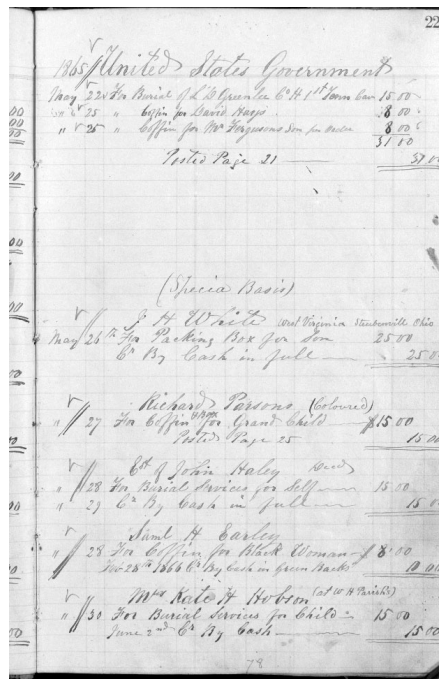 22
1865 United States Government
May 22 For Burial of L D Greenlee Co H 1st Tenn Cav 15 00
" " 25 " Coffin for David Hays 8 00
" " 25 " Coffin for Mr Fergusons Son per Order 8 00
31 00
Posted Page 21 31 00
(Specia Basis)
J H White West Virginia Steubenville Ohio
May 26th For Packing Box for Son 25 00
Cr By Cash in full 25 00
Richard Parsons (Coloured)
" 27 For Coffin & Box for Grand Child $15 00
Posted Page 25 15 00
Est of John Haley Decd
" 28 For Burial Services for Self 15 00
" 29 Cr By Cash in full 15 00
Saml H Earley
" 28 For Coffin for Black Woman $ 8 00
Feb 28th 1866 Cr By Cash in Green Backs 10 00
Mrs Kate H Hobson (at W H Parishs)
" 30 For Burial Services for Child 15 00
June 2nd Cr By Cash 15 00
78